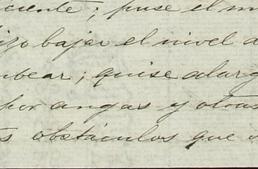 ciente; puse el m
bajar el nivel d
bear; quise alarg
por angas y otras
s obstáculos que